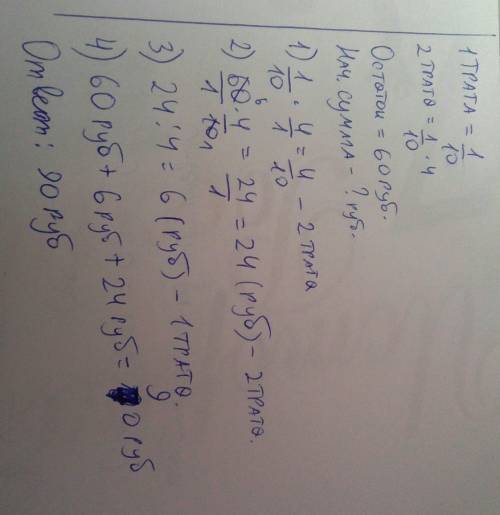 1 ТРАТА = 1/10
2 ТРАТА = 1/10 · 4
Остаток = 60 руб.
Нач. сумма - ? руб.
1) 1/10 · 4/1 = 4/10 - 2 трата
2) 60/1 · 4/10 = 24/1 = 24 (руб) - 2 трата.
3) 24 : 4 = 6 (руб) - 1 трата.
4) 60 руб + 6 руб + 24 руб = 90 руб
Ответ: 90 руб